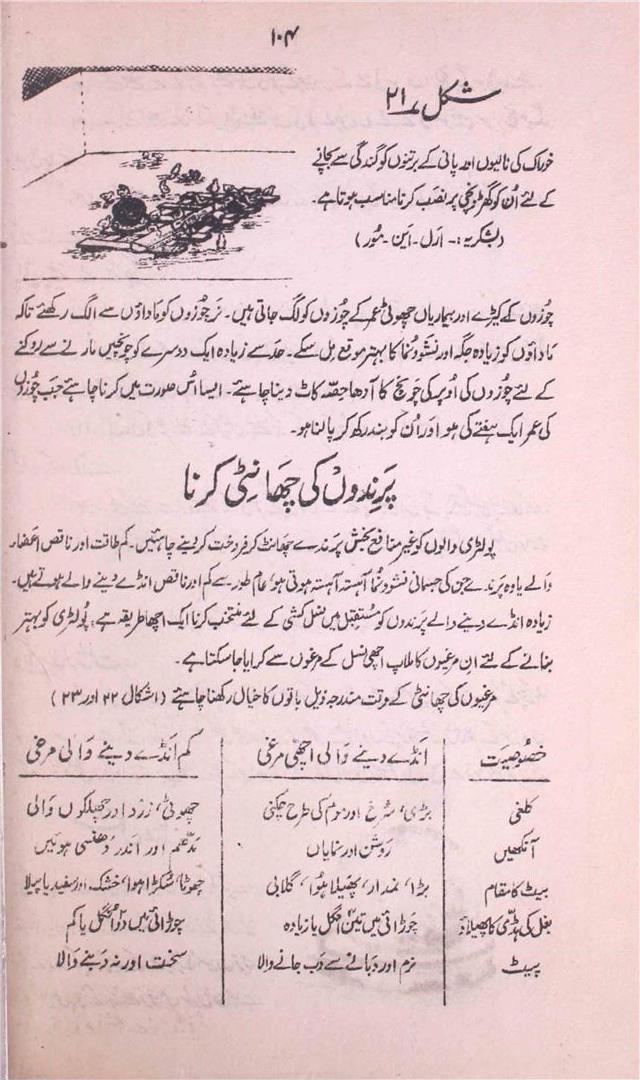 ۱۰۴
شکل ۲۱
خوراک کی نالیوں اور پانی کے برتنوں کو گندگی سے بچانے
کے لئے اُن کو گھڑونچی پر نصب کرنا مناسب ہوتا ہے۔
(بشکریہ:- ارل - این - مُور)
چوزوں کے کیڑے اور بیماریاں چھوٹی عمر کے چوزوں کو لگ جاتی ہیں۔ نر چوزوں کو ماداؤں سے الگ رکھئے تاکہ
ماداؤں کو زیادہ جگہ اور نشوونما کا بہتر موقع مل سکے۔ حد سے زیادہ ایک دوسرے کو چونچیں مارنے سے روکنے
کے لئے چوزوں کی اُوپر کی چونچ کا آدھا حصّہ کاٹ دینا چاہئے۔ ایسا اُس صورت میں کرنا چاہئے جب چوزوں
کی عمر ایک ہفتے کی ہو اور اُن کو بند رکھ کر پالنا ہو۔
پرندوں کی چھانٹی کرنا
پولٹری والوں کو غیر منافع بخش پرندے چھانٹ کر فروخت کر دینے چاہئیں۔ کم طاقت اور ناقص اعضاء
والے یا وہ پرندے جن کی جسمانی نشوونما آہستہ آہستہ ہوتی ہو، عام طور سے کم اور ناقص انڈے دینے والے ہوتے ہیں۔
زیادہ انڈے دینے والے پرندوں کو مستقبل میں نسل کشی کے لئے منتخب کرنا ایک اچھا طریقہ ہے، پولٹری کو بہتر
بنانے کے لئے ان مرغیوں کا ملاپ اچھی نسل کے مرغوں سے کرایا جا سکتا ہے۔
مرغیوں کی چھانٹی کے وقت مندرجہ ذیل باتوں کا خیال رکھنا چاہئے (اشکال ۲۲ اور ۲۳)
خصوصیت انڈے دینے والی اچھی مرغی کم انڈے دینے والی مرغی
کلغی بڑی، سُرخ اور موم کی طرح چکنی چھوٹی، زرد اور چھلکوں والی
آنکھیں روشن اور نمایاں مدّھم اور اندر دھنسی ہوئیں
بیٹ کا مقام بڑا، نمدار، پھیلا ہُوا، گلابی چھوٹا، سُکڑا ہوا، خشک اور سفید یا پیلا
بغل کی ہڈی کا پھیلاؤ چوڑائی میں تین انگل یا زیادہ چوڑائی میں دو انگل یا کم
پیٹ نرم اور دبانے سے دَب جانے والا سخت اور نہ دبنے والا